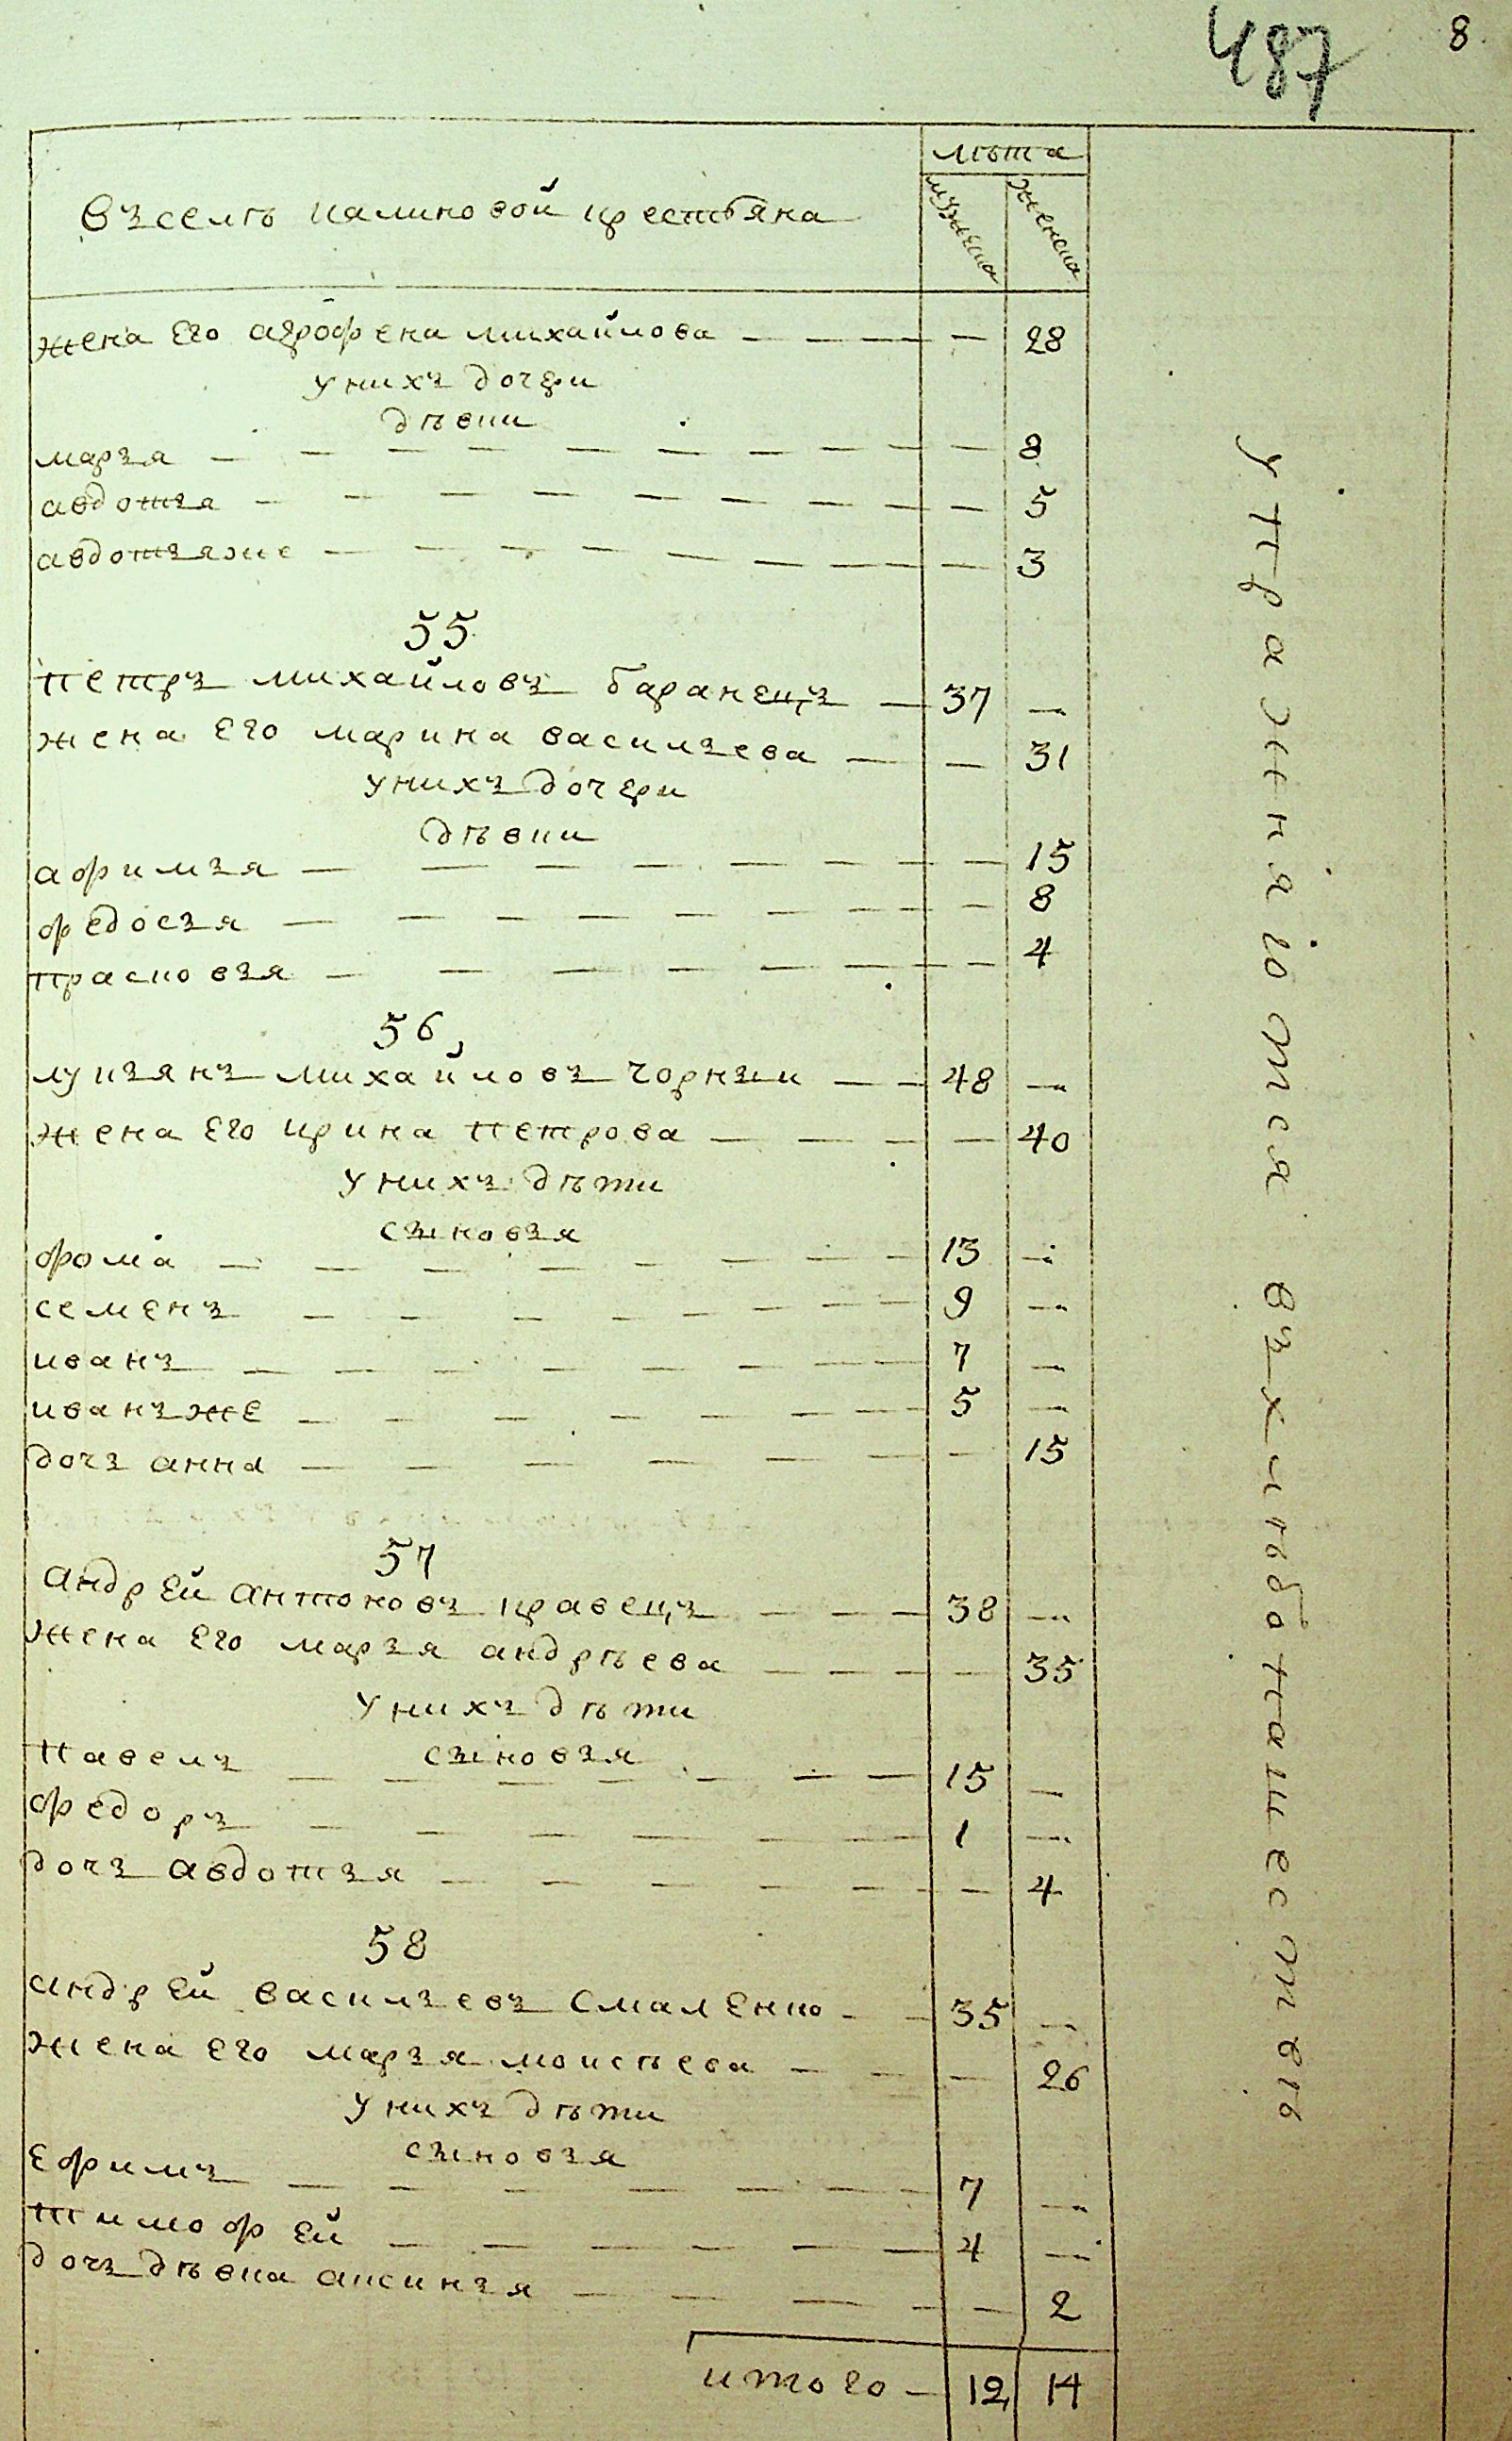 487 8
лѣта
мужеска женска
Въ селѣ калиновой крестьяна
жена Его агрофена михайлова — — — — 28
у нихъ дочери
дѣвки
марья — — — — — — — — — — 8
авдотья — — — — — — — — — 5
авдотьяже — — — — — — — — 3
55
петръ михайловъ баранецъ — 37 —
жена Его марина васильева — — 31
у нихъ дочери
дѣвки
афимья — — — — — — — — 15
федосья — — — — — — — — 8
прасковья — — — — — — — — 4
56
лукьянъ михайловъ чорныи — — 48 —
жена Его ирина петрова — — — — 40
у нихъ дѣти
сыновья
фома — — — — — — — — 13 —
семенъ — — — — — — — 9 —
иванъ — — — — — — — — 7 —
иванъже — — — — — — — 5 —
дочь анна — — — — — — — 15
57
андрЕй антоновъ кравецъ — — — 38 —
жена Его марья андрѣева — — — — 35
у нихъ дѣти
сыновья
павелъ — — — — — — — 15 —
федоръ — — — — — — 1 —
дочь авдотья — — — — — — — 4
58
андрЕй васильевъ смалЕнко — — 35 —
жена Его марья моисѣева — — — 26
у нихъ дѣти
сыновья
Ефимъ — — — — — — — 7 —
тимофЕй — — — — — — 4 —
дочь дѣвка аксинья — — — — — 2
итого — 12 14
упражняюотся въ хлѣбопашествѣ